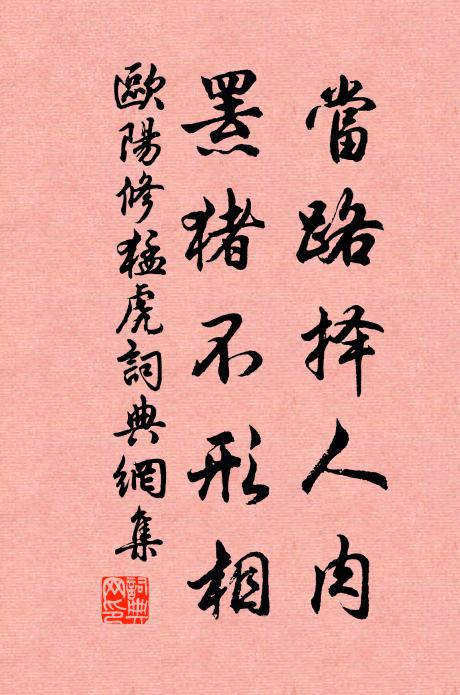 當路择人肉
罴猪不形相
歐陽修猛虎詞典網集
詞典
网印